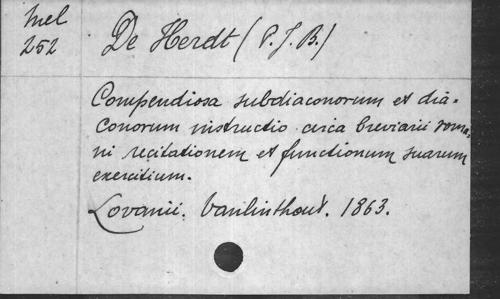 Mel
252
De Herdt (P. J. B.)
Compendiosa subdiaconorum et dia-
conorum instructio circa breviarii roma-
ni recitationem et functionum suarum
exercitium.
Lovanii, Vanlinthout. 1863.